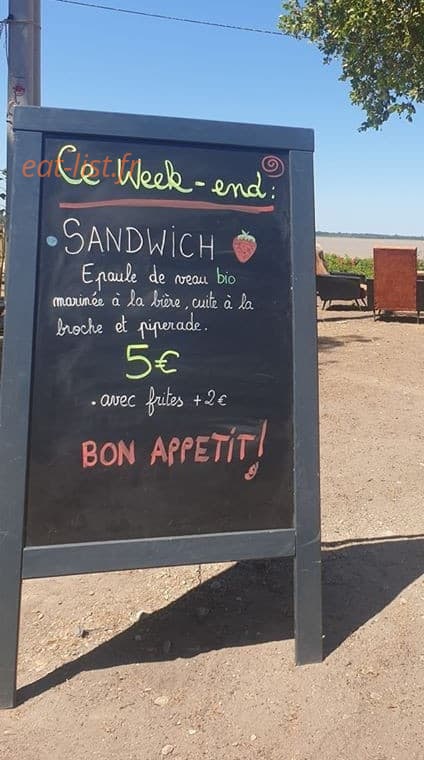 eat-list.fr
Ce Week-end:
SANDWICH
Epaule de veau bio
marinée à la bière, cuite à la
broche et piperade.
5€
. avec frites +2€
BON APPETIT!